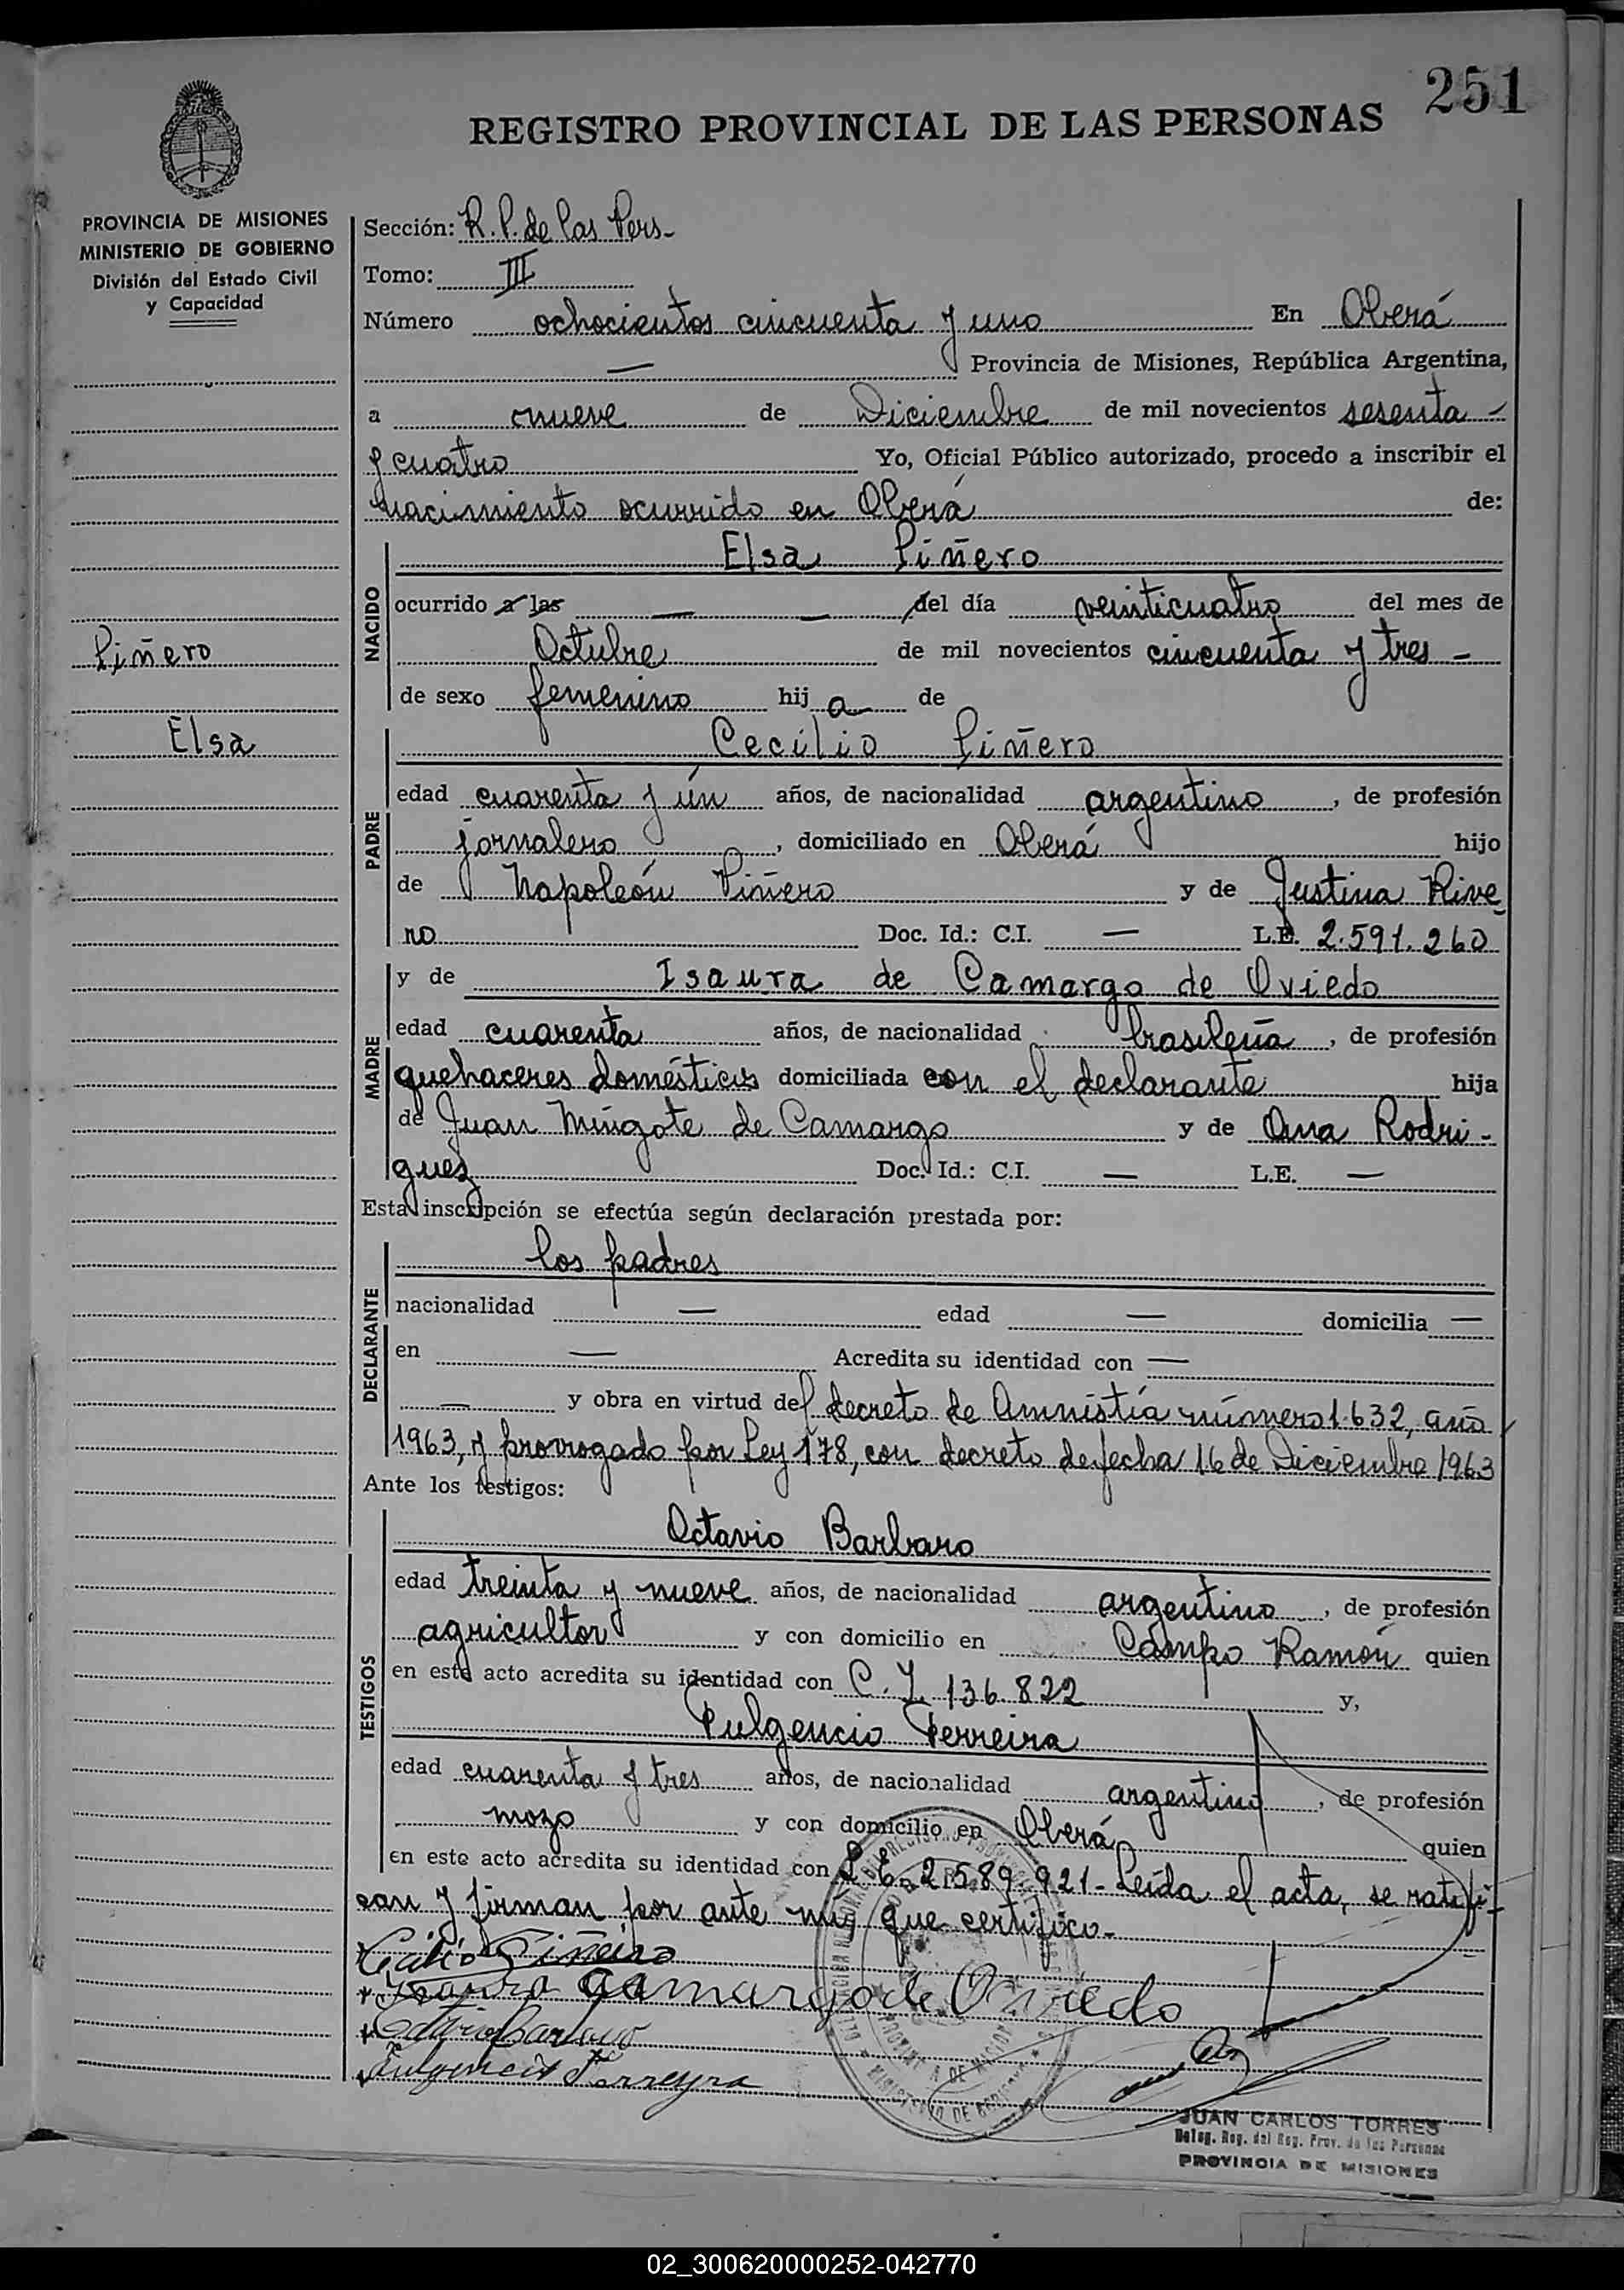 251
REGISTRO PROVINCIAL DE LAS PERSONAS
PROVINCIA DE MISIONES
MINISTERIO DE GOBIERNO
División del Estado Civil
y Capacidad
Piñero
Elsa
Sección: R. P. de las Pers-
Tomo: III
Número ochocientos cincuenta y uno En Oberá
— Provincia de Misiones, República Argentina,
a nueve de Diciembre de mil novecientos sesenta -
y cuatro Yo, Oficial Público autorizado, procedo a inscribir el
nacimiento ocurrido en Oberá de:
NACIDO
Elsa Piñero
ocurrido a las — — del día veinticuatro del mes de
Octubre de mil novecientos cincuenta y tres -
de sexo femenino hij a de
PADRE
Cecilio Piñero
edad cuarenta y ún años, de nacionalidad argentino, de profesión
jornalero, domiciliado en Oberá hijo
de Napoleón Piñero y de Justina Rive
ro Doc. Id.: C.I. — L.E. 2.591.260
MADRE
y de Isaura de Camargo de Oviedo
edad cuarenta años, de nacionalidad brasileña, de profesión
quehaceres domésticos domiciliada con el declarante hija
de Juan Mingote de Camargo y de Ana Rodri-
guez Doc. Id.: C.I. — L.E. —
Esta inscripción se efectúa según declaración prestada por:
DECLARANTE
los padres
nacionalidad — edad — domicilia —
en — Acredita su identidad con —
— y obra en virtud del decreto de Amnistía número 1.632, año
1963, y prorrogado por Ley 178, con decreto de fecha 16 de Diciembre 1963
Ante los testigos:
TESTIGOS
Octavio Barbaro
edad treinta y nueve años, de nacionalidad argentino, de profesión
agricultor y con domicilio en Campo Ramón quien
en este acto acredita su identidad con C. I. 136.822 y,
Fulgencio Ferreira
edad cuarenta y tres años, de nacionalidad argentino, de profesión
mozo y con domicilio en Oberá quien
en este acto acredita su identidad con L. E. 2.589.921- Leída el acta, se ratifi-
can y firman por ante mí que certifico.-
Piñeiro
Isaura Camargo de Oviedo
Octavio Barbaro
Fulgencio Ferreyra
JUAN CARLOS TORRES
Deleg. Reg. del Reg. Prov. de las Personas
PROVINCIA DE MISIONES
02_300620000252-042770